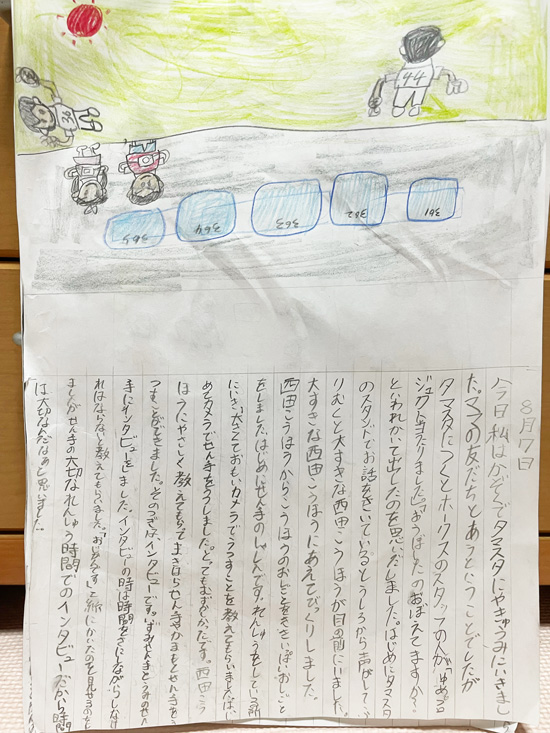 36
44
365
364
363
362
361
8月7日
今日私はかぞくでタマスタにやきゅうみにいきまし
た。ママの友だちとあうということでしたが
タマスタにつくとホークスのスタッフの人が「ゆめプロ
ジェクト当たりました。おうぼしたのおぼえてますか?」
といわれかいて出したのを思いだしました。はじめにタマスタ
のスタンドでお話をきいているとうしろから声がして、ふ
りむくと大すきな西田こうほうが目の前にいました。
大すきな西田こうほうにあえてびっくりしました。
西田こうほうからこうほうのおしごとをききいっぱいおしごと
をしました。はじめにせん手のしゃしんです。れんしゅうをしている
にいき、大きくておもいカメラでうつすことを教えてもらいました。はじ
めてカメラでせん手をうつしました。とってもむずかしかったです。西田こう
ほうにやさしく教えてもらって
つすことができました。そのつぎは、インタビューです。
手にインタビューをしました。インタビューの時は時間をきにしながらしなけ
ればならないと教えてもらいました。
ましたがせん手の大切なれんしゅう時間でのインタビューだから、時間
は大切なんだなぁと思いました。